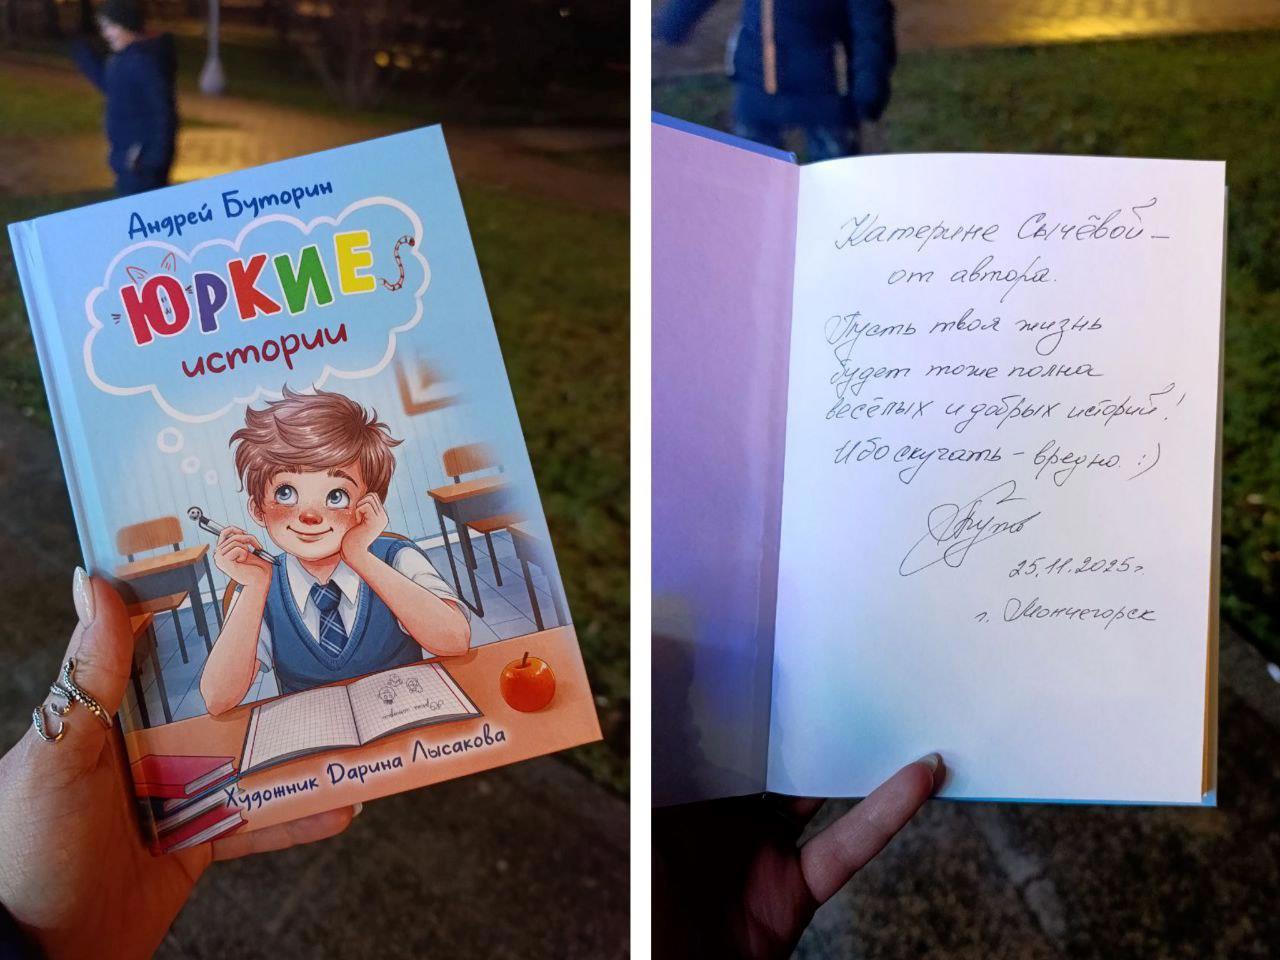 Андрей Буторин
ЮРКИЕ
истории
Художник Дарина Лысакова
Катерине Сычёвой –
от автора.
Пусть твоя жизнь
будет тоже полна
весёлых и добрых историй!
Ибо скучать – вредно. :)
25.11.2025г.
г. Мончегорск